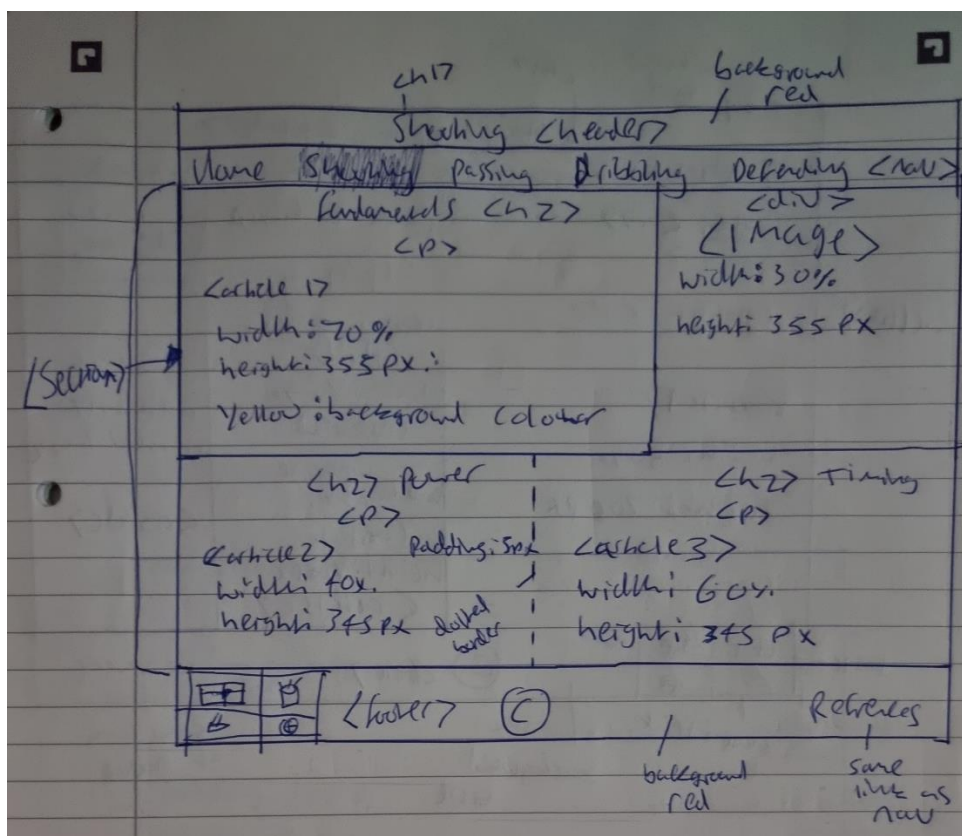 <h1>
background
red
Shooting <header>
Home Shooting Passing Dribbling Defending <nav>
Fundamentals <h2>
<p>
<article 1>
width: 70%
height: 355px;
Yellow: background colour
<div>
<Image>
width: 30%
height: 355px
<Section>
<h2> Power
<p>
<article2> Padding: 5px
width: 40%
height: 345px dotted
border
<h2> Timing
<p>
<article3>
width: 60%
height: 345 px
<footer> © References
background
red
same
link as
nav